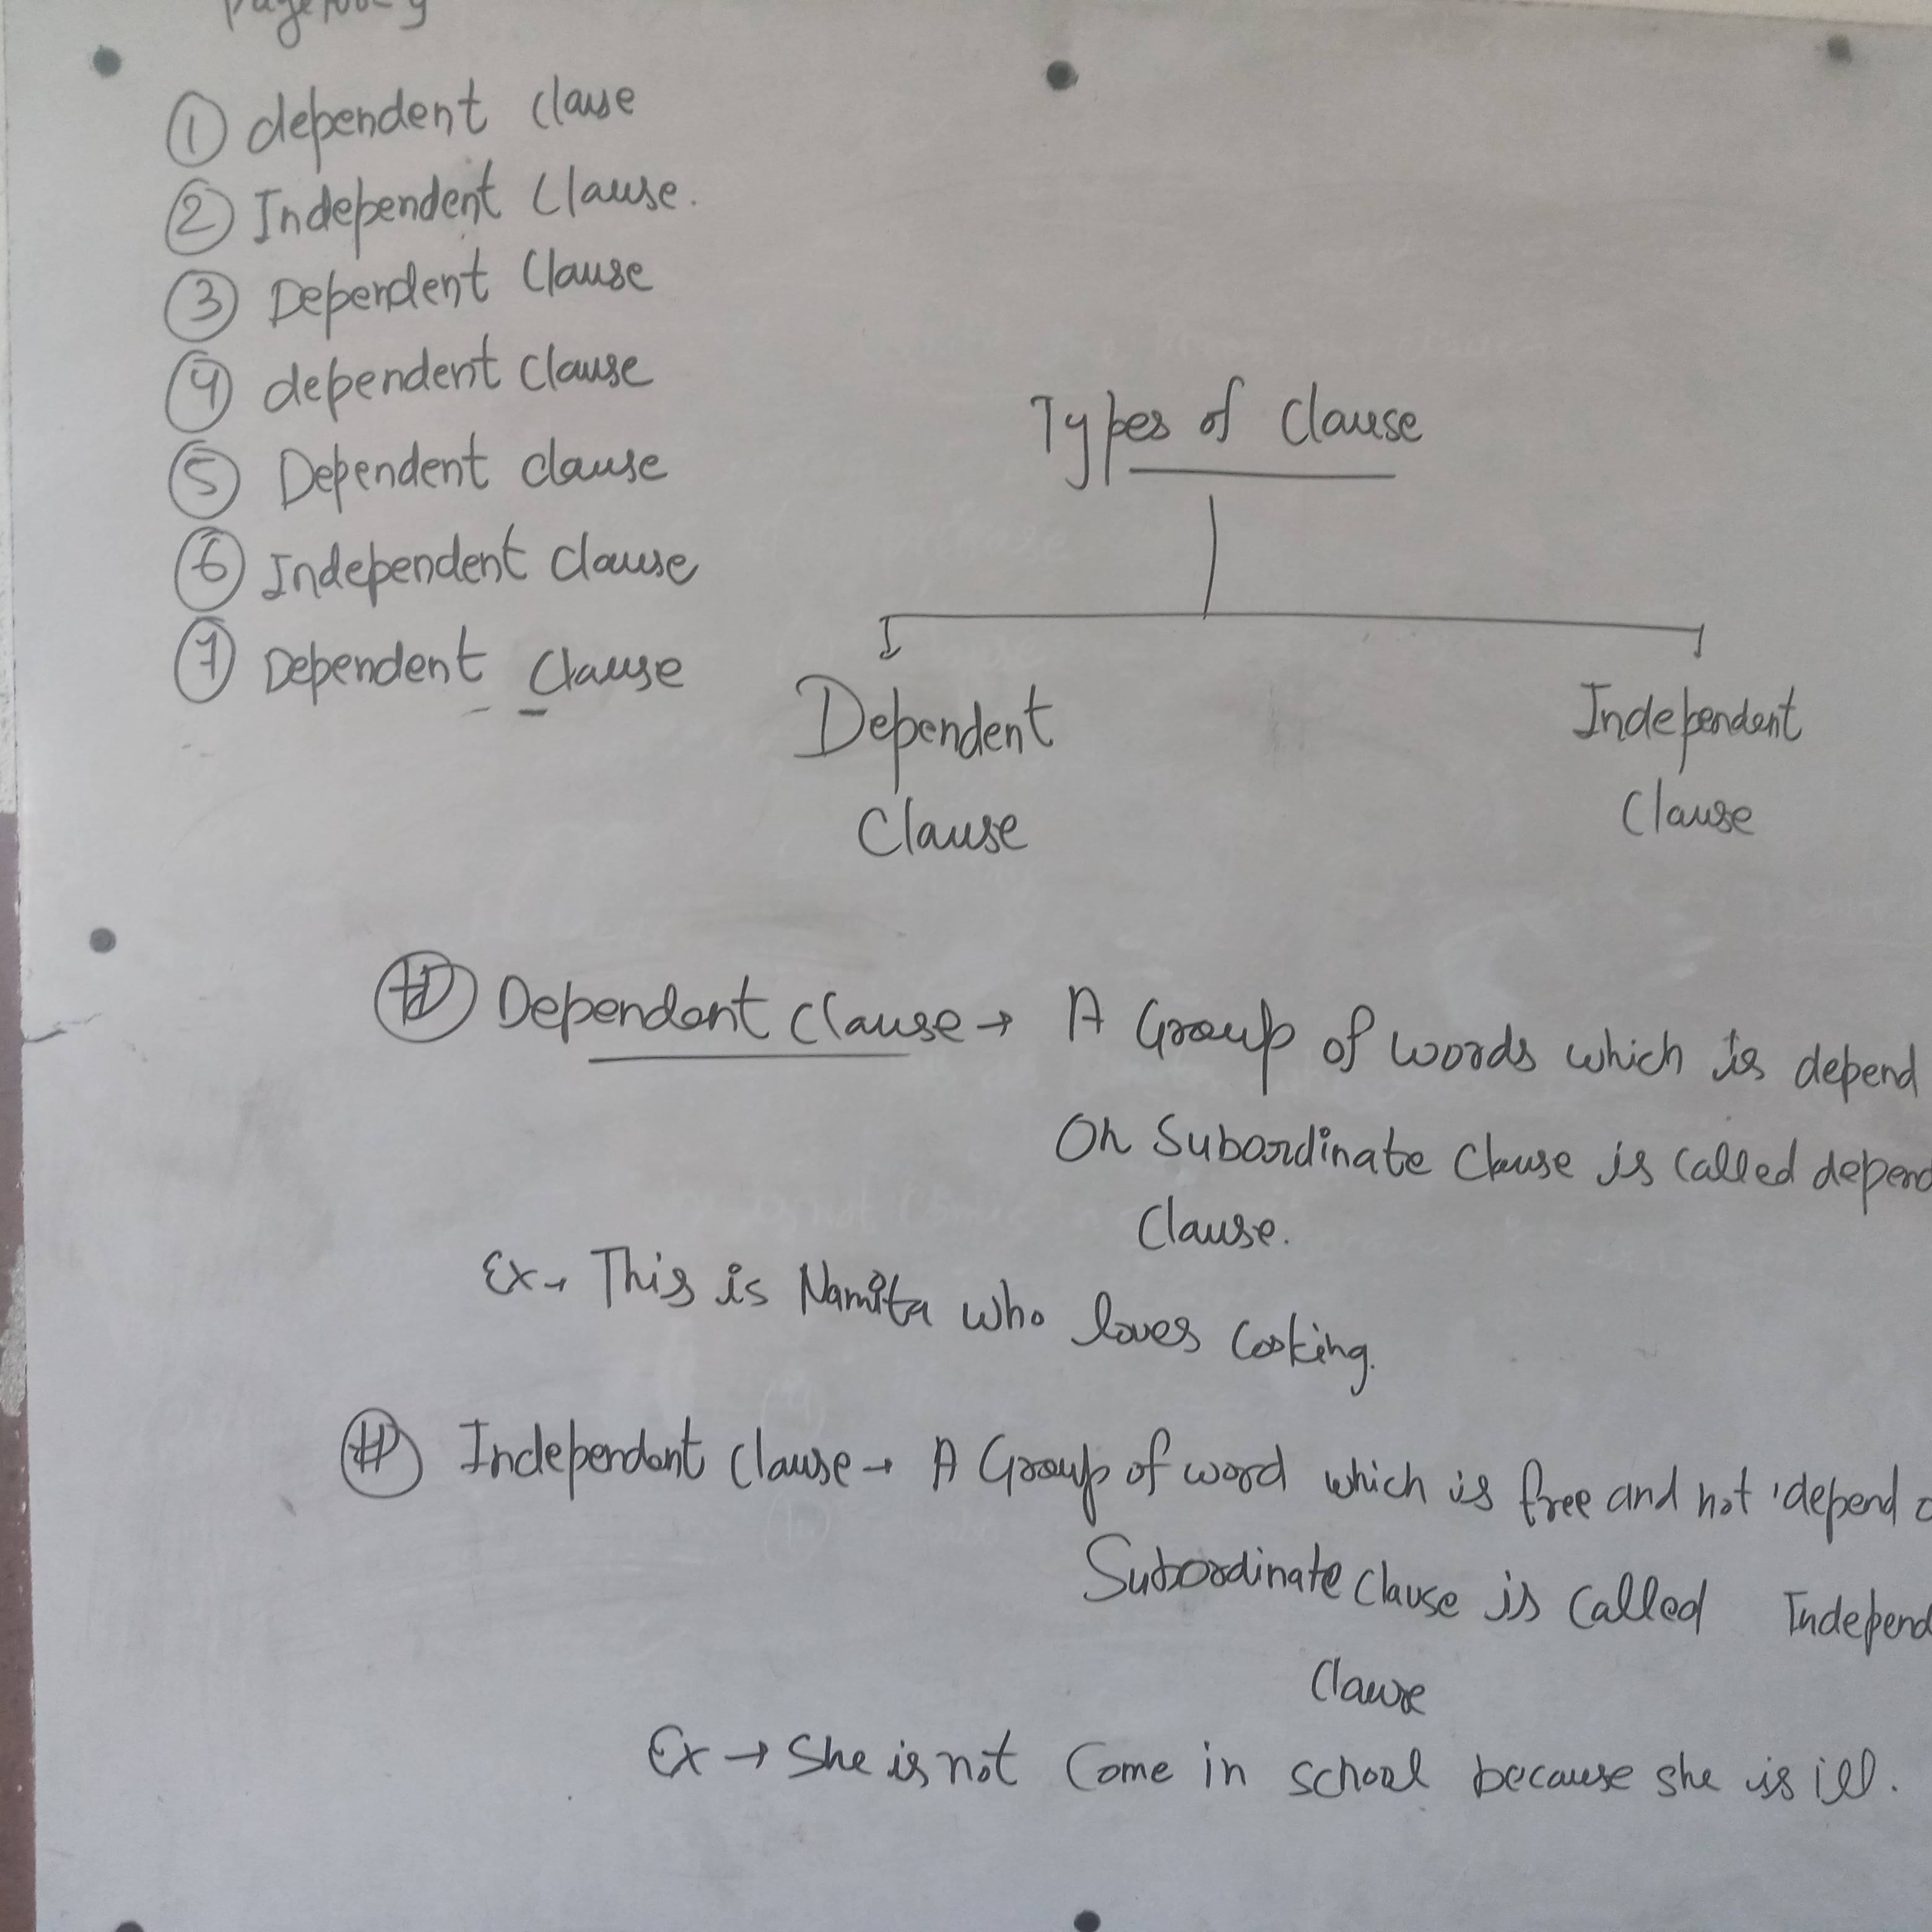 ① dependent clause
② Independent Clause.
③ Dependent Clause
④ dependent clause
⑤ Dependent clause
⑥ Independent clause
⑦ Dependent Clause
Types of Clause
Dependent Clause
Independent Clause
# Dependent Clause → A Group of words which is depend
On Subordinate Clause is called depend
Clause.
Ex → This is Namita who loves cooking.
# Independent Clause → A Group of word which is free and not depend
Subordinate Clause is called Independ
Clause
Ex → She is not Come in school because she is ill.